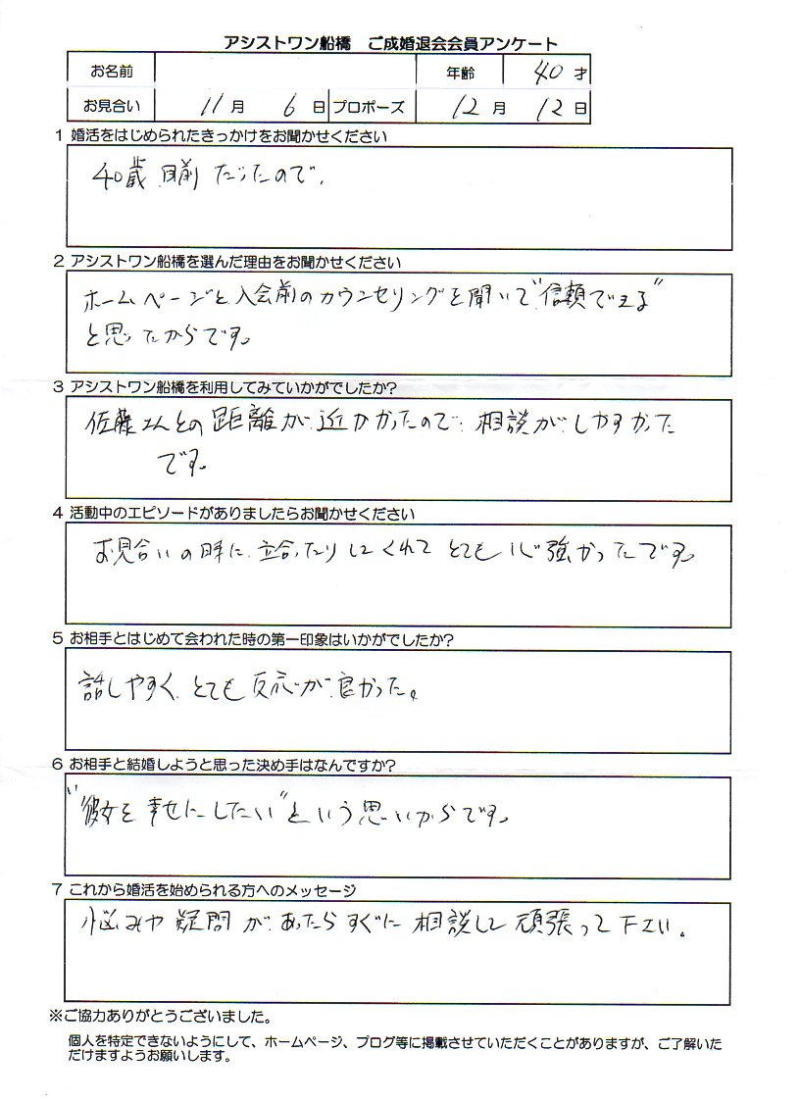 アシストワン船橋　ご成婚退会会員アンケート
お名前　年齢　40才
お見合い　11月　6日　プロポーズ　12月　12日
1 婚活をはじめられたきっかけをお聞かせください
40歳目前だったので、
2 アシストワン船橋を選んだ理由をお聞かせください
ホームページと入会前のカウンセリングを聞いて"信頼できる"
と思ったからです。
3 アシストワン船橋を利用してみていかがでしたか?
佐藤さんとの距離が近かかったので相談がしやすかった
です。
4 活動中のエピソードがありましたらお聞かせください
お見合いの時に立合ったりしてくれてとても心強かったです。
5 お相手とはじめて会われた時の第一印象はいかがでしたか?
話しやすく、とても反応が良かった。
6 お相手と結婚しようと思った決め手はなんですか?
"彼女を幸せにしたい"という思いからです。
7 これから婚活を始められる方へのメッセージ
悩みや疑問があったらすぐに相談して頑張って下さい。
※ご協力ありがとうございました。
個人を特定できないようにして、ホームページ、ブログ等に掲載させていただくことがありますが、ご了解いた
だけますようお願いします。